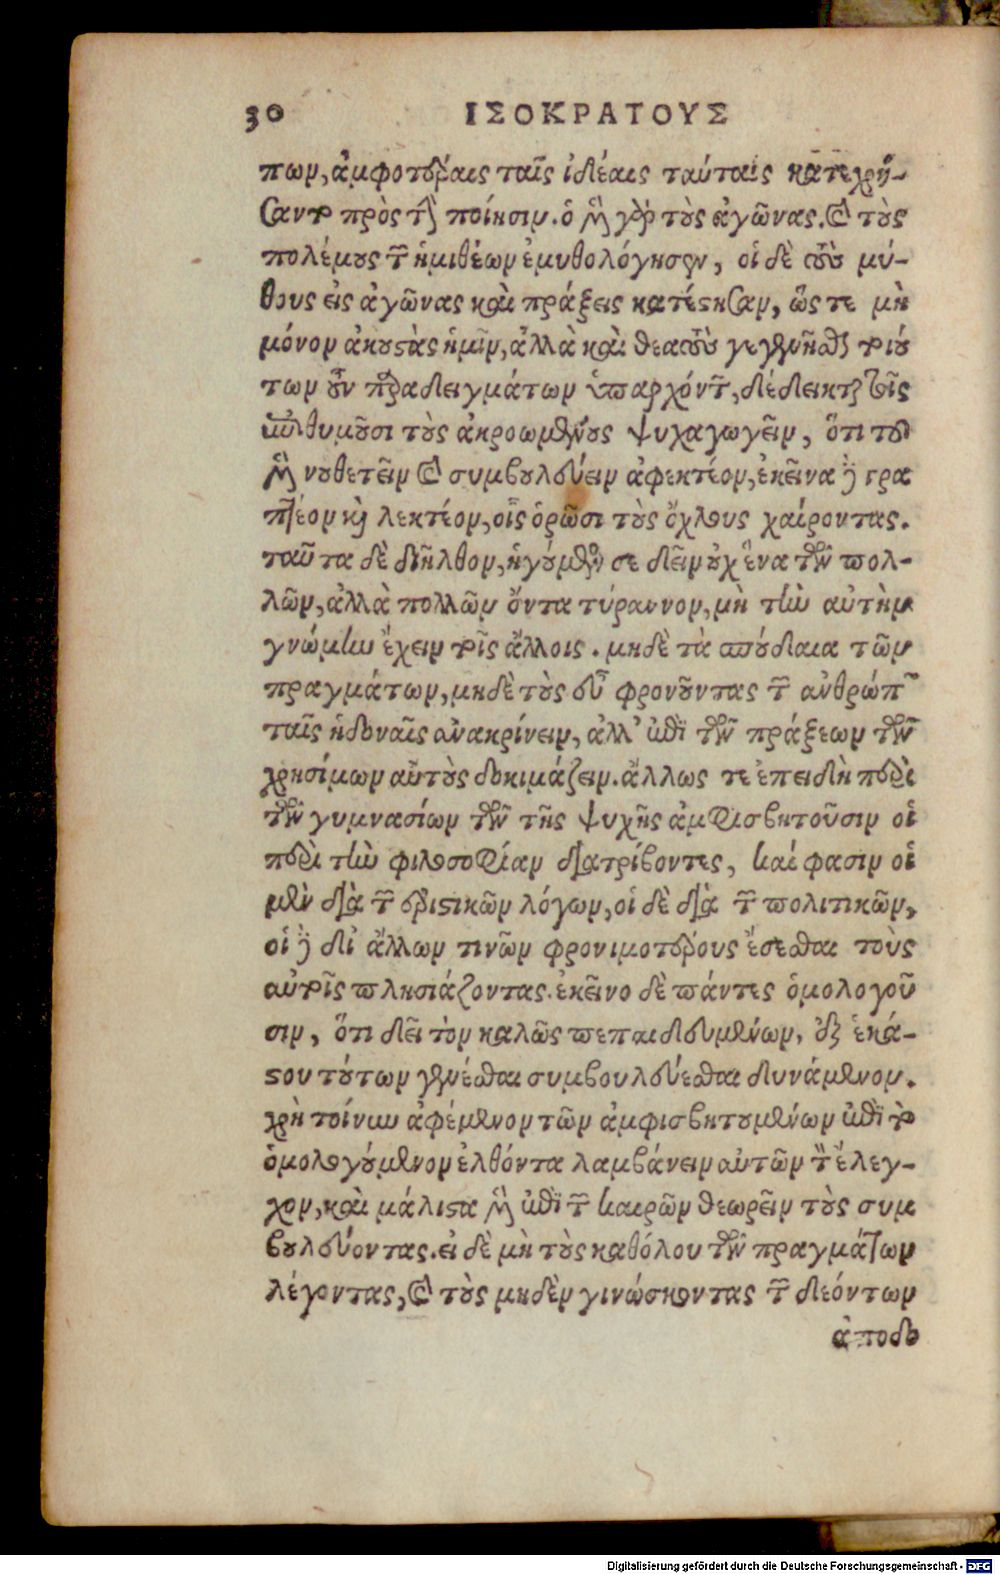 30 ΙΣΟΚΡΑΤΟΥΣ
πων, ἀμφοτέραις ταῖς ἰδέαις ταύταις κατεχρή-
σαντο πρὸς τὴν ποίησιν. ὁ μὲν γὰρ τοὺς ἀγῶνας, καὶ τοὺς
πολέμους τῶν ἡμιθέων ἐμυθολόγησεν, οἱ δὲ τοὺς μύ-
θους εἰς ἀγῶνας καὶ πράξεις κατέστησαν, ὥστε μὴ
μόνον ἀκουστὰς ἡμῖν, ἀλλὰ καὶ θεατοὺς γεγενῆσθαι τοιού
των οὖν παραδειγμάτων ὑπαρχόντων, δέδεικται τοῖς
ἐπιθυμοῦσι τοὺς ἀκροωμένους ψυχαγωγεῖν, ὅτι τοῦ
μὲν νουθετεῖν καὶ συμβουλεύειν ἀφεκτέον, ἐκεῖνα δὲ γρα
πτέον καὶ λεκτέον, οἷς ὁρῶσι τοὺς ὄχλους χαίροντας.
ταῦτα δὲ διῆλθον, ἡγούμενός σε δεῖν οὐχ ἕνα τῶν πολ-
λῶν, ἀλλὰ πολλῶν ὄντα τύραννον, μὴ τὴν αὐτὴν
γνώμην ἔχειν τοῖς ἄλλοις. μηδὲ τὰ σπουδαῖα τῶν
πραγμάτων, μηδὲ τοὺς εὖ φρονοῦντας τῶν ἀνθρώπων
ταῖς ἡδοναῖς ἀνακρίνειν, ἀλλ' ἐπὶ τῶν πράξεων τῶν
χρησίμων αὐτοὺς δοκιμάζειν. ἄλλως τε ἐπειδὴ περὶ
τῶν γυμνασίων τῶν τῆς ψυχῆς ἀμφισβητοῦσιν οἱ
περὶ τὴν φιλοσοφίαν διατρίβοντες, καί φασιν οἱ
μὲν διὰ τῶν ἐριστικῶν λόγων, οἱ δὲ διὰ τῶν πολιτικῶν,
οἱ δὲ δι' ἄλλων τινῶν φρονιμοτέρους ἔσεσθαι τοὺς
αὐτοῖς πλησιάζοντας. ἐκεῖνο δὲ πάντες ὁμολογοῦ
σιν, ὅτι δεῖ τὸν καλῶς πεπαιδευμένων, ἐξ ἑκά-
στου τούτων γενέσθαι συμβουλεύεσθαι δυνάμενον.
χρὴ τοίνυν ἀφέμενον τῶν ἀμφισβητουμένων ἐπὶ τὸ
ὁμολογούμενον ἐλθόντα λαμβάνειν αὐτῶν τὸν ἔλεγ-
χον, καὶ μάλιστα μὲν ἐπὶ τῶν καιρῶν θεωρεῖν τοὺς συμ
βουλεύοντας. εἰ δὲ μὴ τοὺς καθόλου τῶν πραγμάτων
λέγοντας, καὶ τοὺς μηδὲν γινώσκοντας τῶν δεόντων
ἀποδο
Digitalisierung gefördert durch die Deutsche Forschungsgemeinschaft - DFG